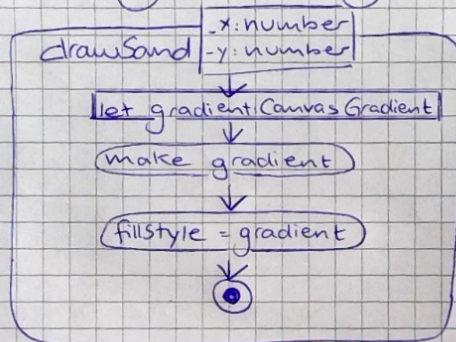 _x: number
drawSand -y: number
let gradient: Canvas Gradient
make gradient
fillstyle = gradient